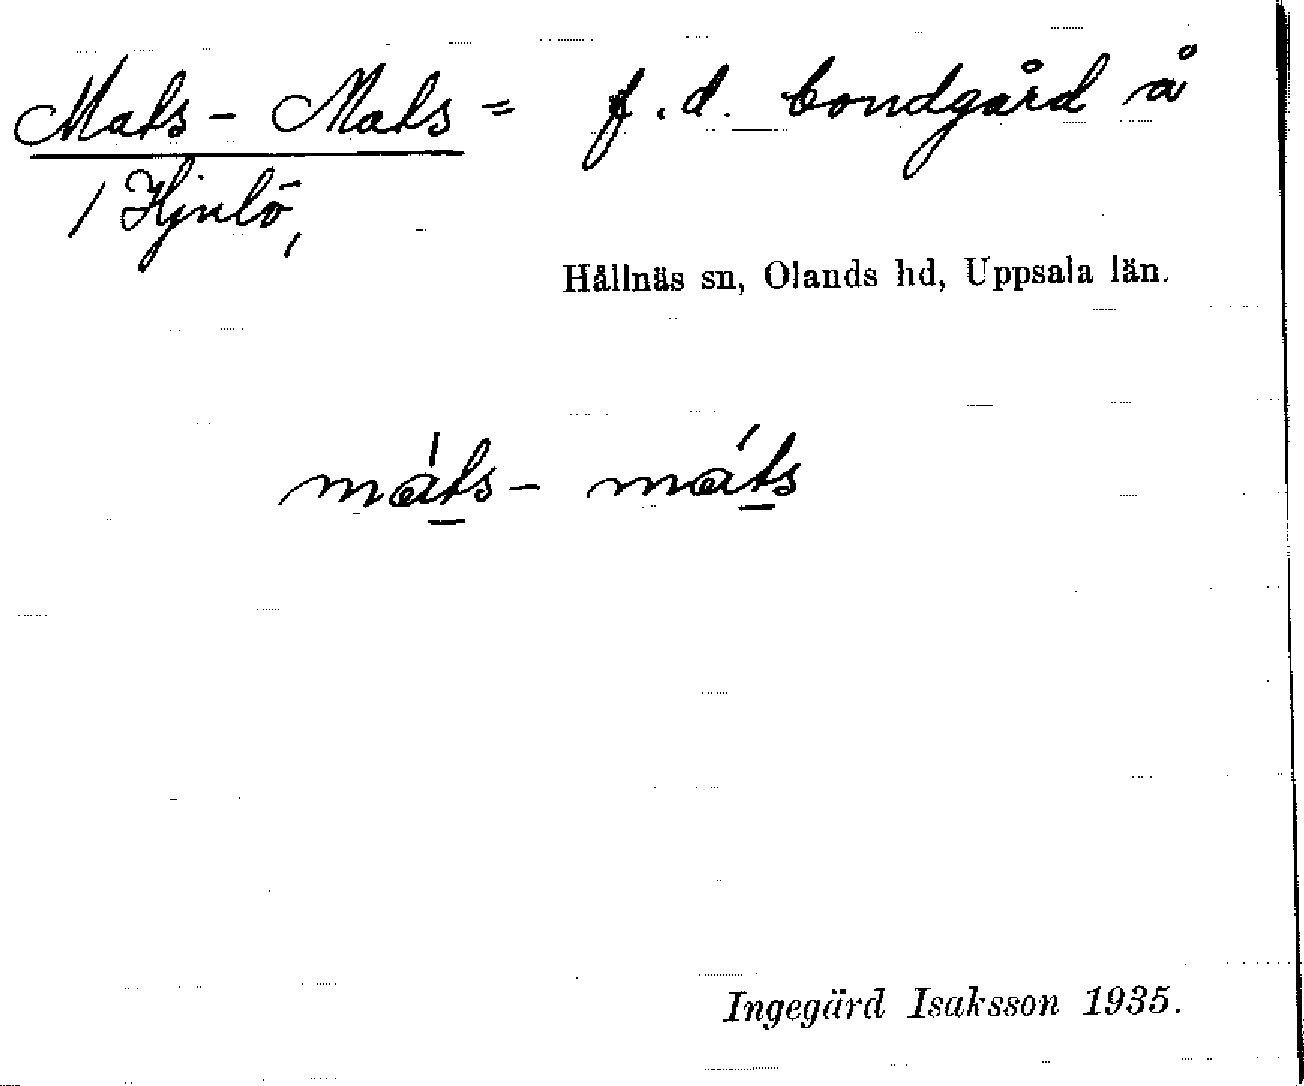 Mats-Mats = f.d. bondgård å
/ Hjulö,
Hållnäs sn, Olands hd, Uppsala län.
máts- máts
Ingegärd Isaksson 1935.